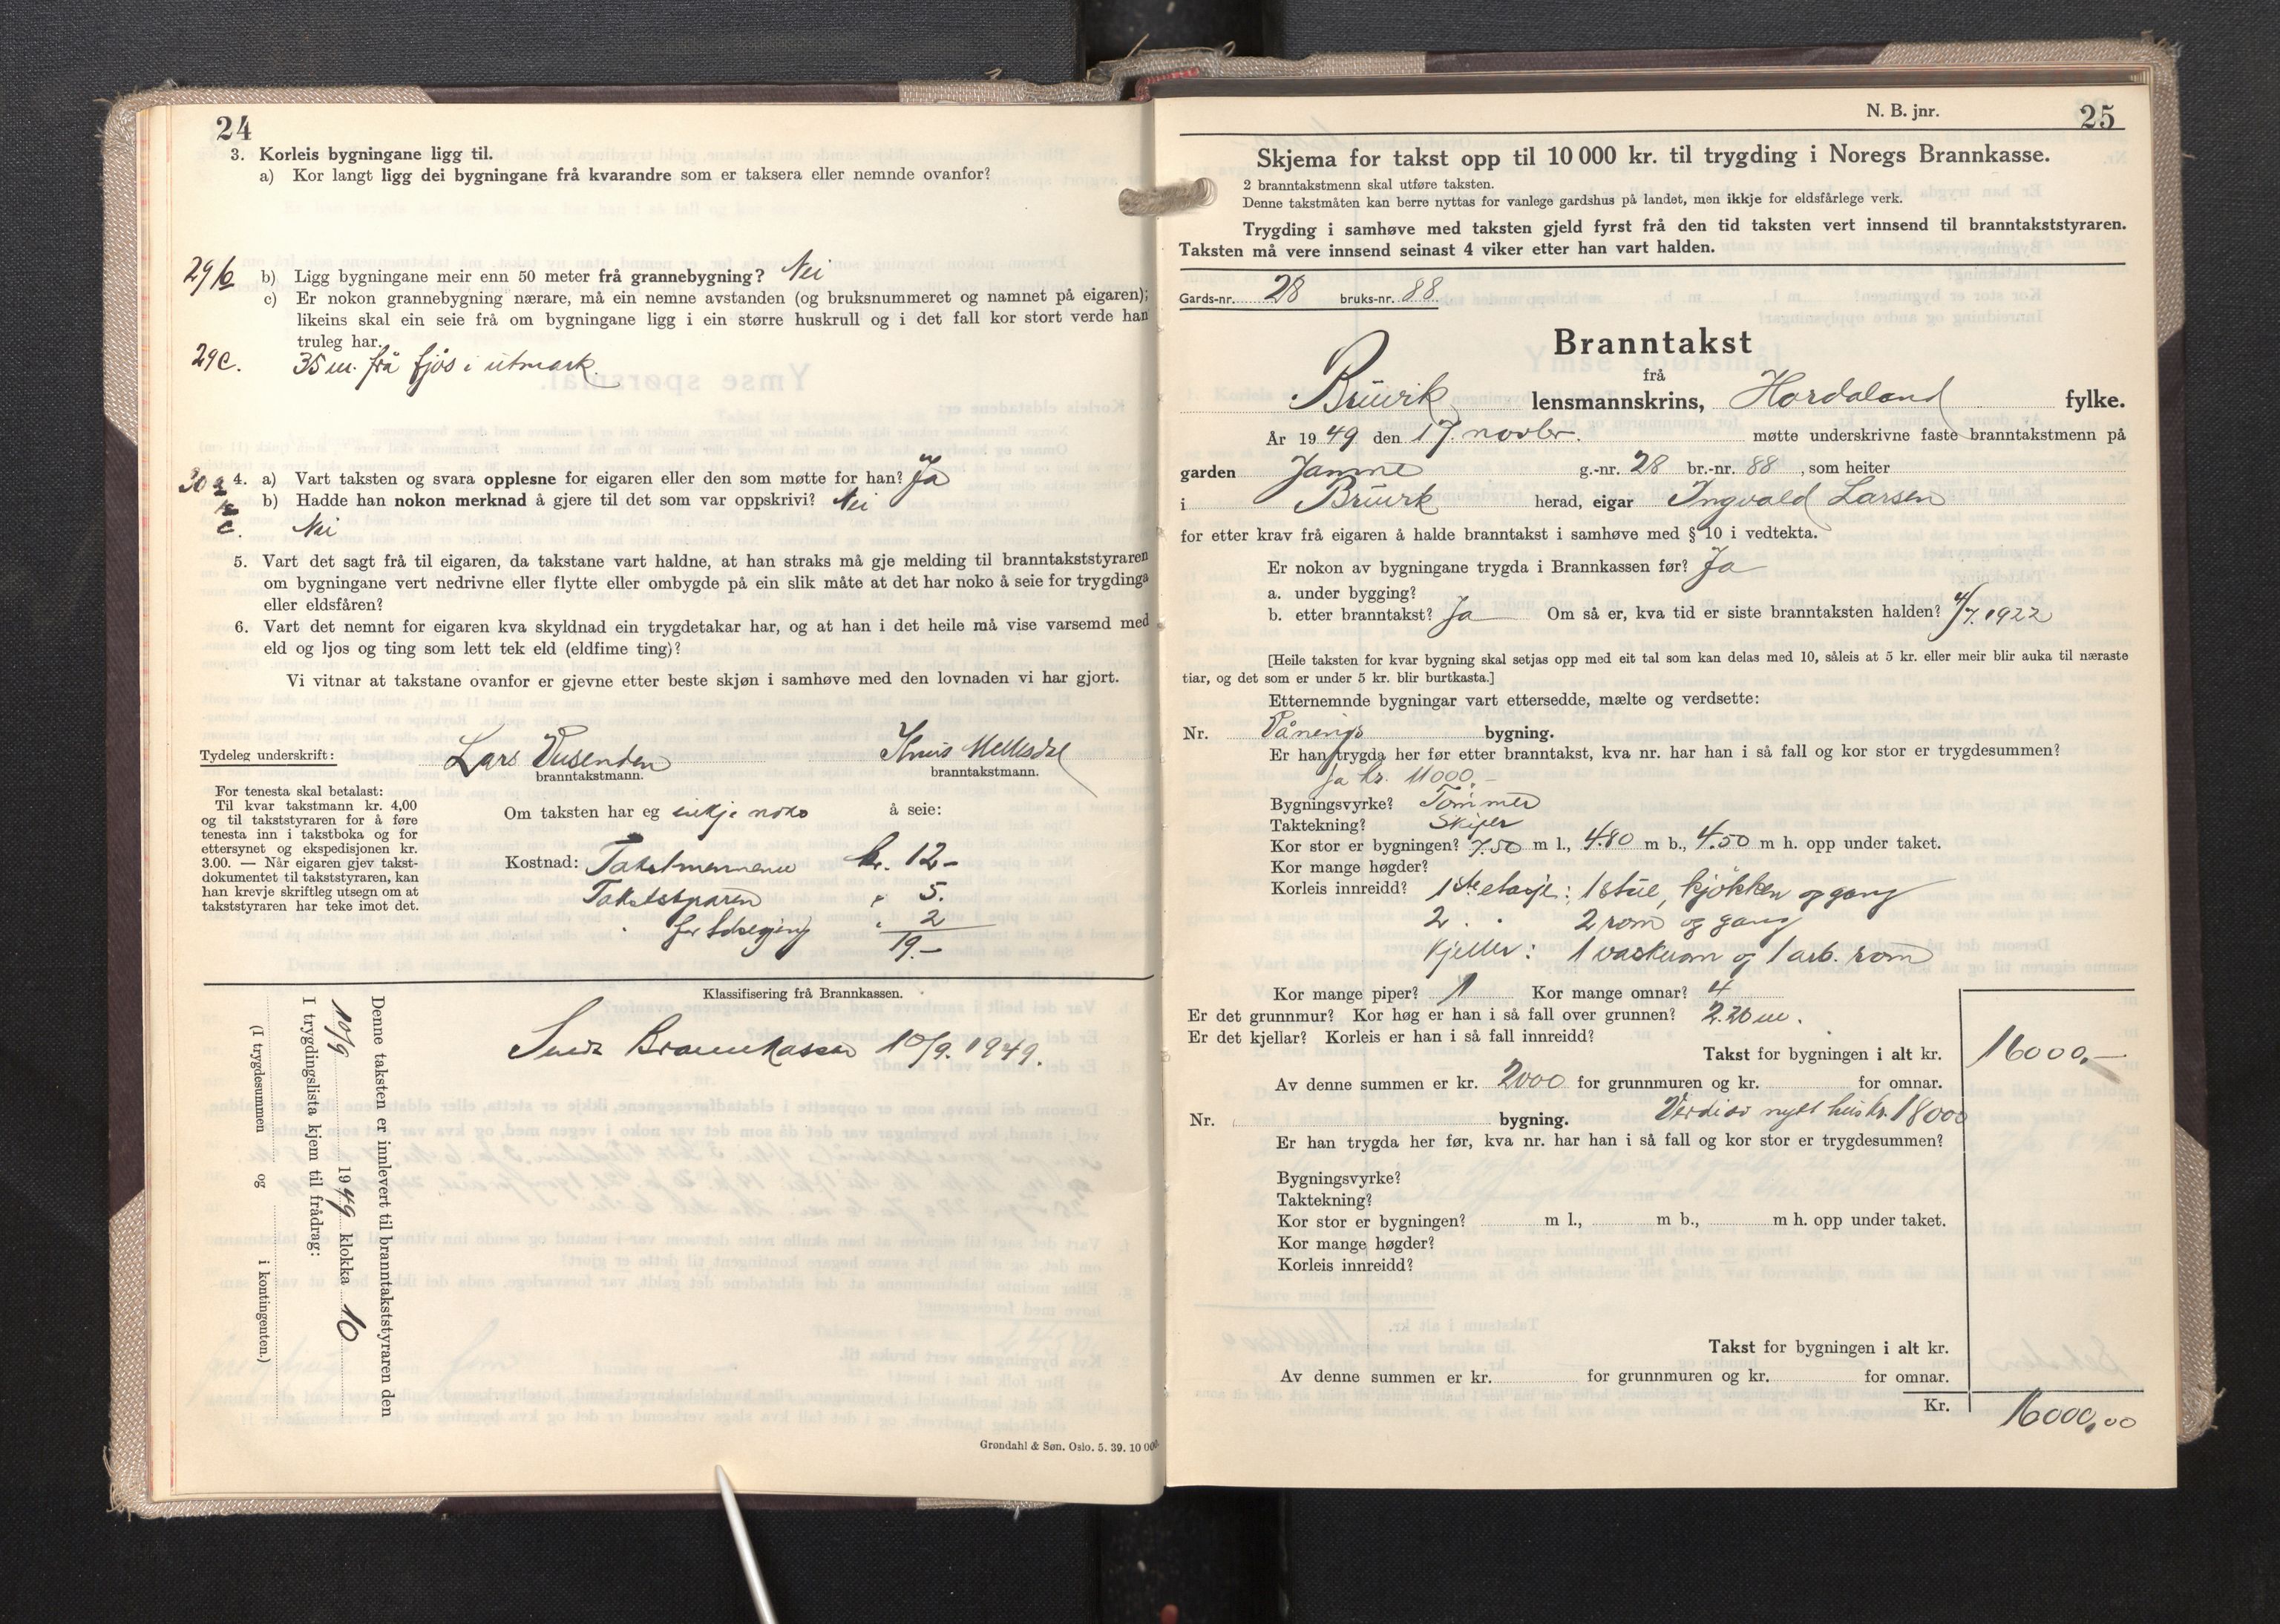 24
3. Korleis bygningane ligg til.
a) Kor langt ligg dei bygningane frå kvarandre som er taksera eller nemnde ovanfor?
29/b b) Ligg bygningane meir enn 50 meter frå grannebygning? Nei
c) Er nokon grannebygning nærare, må ein nemne avstanden (og bruksnummeret og namnet på eigaren);
likeins skal ein seie frå om bygningane ligg i ein større huskrull og i det fall kor stort verde han
truleg har.
29c. 35 m. frå fjøs i utmark.
30 a 4. a) Vart taksten og svara opplesne for eigaren eller den som møtte for han? Ja
b) Hadde han nokon merknad å gjere til det som var oppskrivi? Nei
c. Nei
5. Vart det sagt frå til eigaren, da takstane vart haldne, at han straks må gje melding til branntakststyraren
om bygningane vert nedrivne eller flytte eller ombygde på ein slik måte at det har noko å seie for trygdinga
eller eldsfåren?
6. Vart det nemnt for eigaren kva skyldnad ein trygdetakar har, og at han i det heile må vise varsemd med
eld og ljos og ting som lett tek eld (eldfime ting)?
Vi vitnar at takstane ovanfor er gjevne etter beste skjøn i samhøve med den lovnaden vi har gjort.
Tydeleg underskrift: Lars
branntakstmann. branntakstmann.
For tenesta skal betalast:
Til kvar takstmann kr. 4,00
og til takststyraren for å føre
tenesta inn i takstboka og for
ettersynet og ekspedisjonen kr.
3.00. — Når eigaren gjev takst-
dokumentet til takststyraren, kan
han krevje skriftleg utsegn om at
takststyraren har teke imot det.
Om taksten har eg inkje noko å seie:
Kostnad: Takstmennene kr. 12-
Takststyraren " 5.
" for " 2
19.-
Klassifisering frå Brannkassen.
Brannkassen 10/9. 1949.
Denne taksten er innlevert til branntakststyraren den
10/9 1949 klokka 10
I trygdingslista kjem til frådrag:
(I trygdesummen og i kontingenten.)
Grøndahl & Søn. Oslo. 5. 39. 10 000.
N. B. jnr. 25
Skjema for takst opp til 10 000 kr. til trygding i Noregs Brannkasse.
2 branntakstmenn skal utføre taksten.
Denne takstmåten kan berre nyttas for vanlege gardshus på landet, men ikkje for eldsfårlege verk.
Trygding i samhøve med taksten gjeld fyrst frå den tid taksten vert innsend til branntakststyraren.
Taksten må vere innsend seinast 4 viker etter han vart halden.
Gards-nr. 28 bruks-nr. 88
Branntakst
frå
Bruvik lensmannskrins, Hordaland fylke.
År 1949 den 17. novbr. møtte underskrivne faste branntakstmenn på
garden Jamne g.-nr. 28 br.-nr. 88, som heiter
i Bruvik herad, eigar Ingvald Larsen
for etter krav frå eigaren å halde branntakst i samhøve med § 10 i vedtekta.
Er nokon av bygningane trygda i Brannkassen før? Ja
a. under bygging?
b. etter branntakst? Ja Om så er, kva tid er siste branntaksten halden? 4/7.1922
[Heile taksten for kvar bygning skal setjas opp med eit tal som kan delas med 10, såleis at 5 kr. eller meir blir auka til næraste
tiar, og det som er under 5 kr. blir burtkasta.]
Etternemnde bygningar vart ettersedde, mælte og verdsette:
Nr. Vånings bygning.
Er han trygda her før etter branntakst, kva nr. har han i så fall og kor stor er trygdesummen?
Ja kr. 11000.-
Bygningsvyrke? Tømmer
Taktekning? Skifer
Kor stor er bygningen? 7.50 m l., 4.80 m b., 4.50 m h. opp under taket.
Kor mange høgder?
Korleis innreidd? 1ste etasje: 1 stue, kjøkken og gang
2. " 2 rom og gang
Kjeller: 1 vaskerom og 1 arb. rom
Kor mange piper? 1 Kor mange omnar? 4
Er det grunnmur? Kor høg er han i så fall over grunnen? 2.20 m.
Er det kjellar? Korleis er han i så fall innreidd?
Takst for bygningen i alt kr. 16000.-
Av denne summen er kr. 2000 for grunnmuren og kr. for omnar.
Nr. bygning. Verdi av nytt hus kr. 18000
Er han trygda her før, kva nr. har han i så fall og kor stor er trygdesummen?
Bygningsvyrke?
Taktekning?
Kor stor er bygningen? m l., m b., m h. opp under taket.
Kor mange høgder?
Korleis innreidd?
Takst for bygningen i alt kr.
Av denne summen er kr. for grunnmuren og kr. for omnar.
Kr. 16000,00